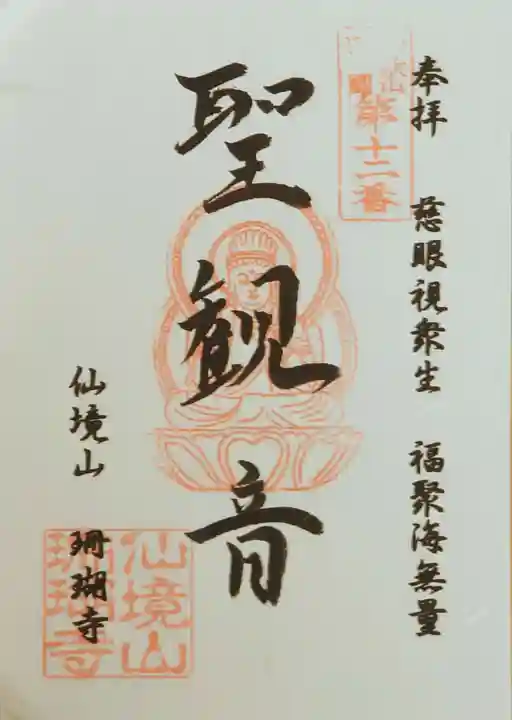 奉拝 慈眼視衆生 福聚海無量
第十二番
聖観音
仙境山
珊瑚寺
仙境山
珊瑚寺